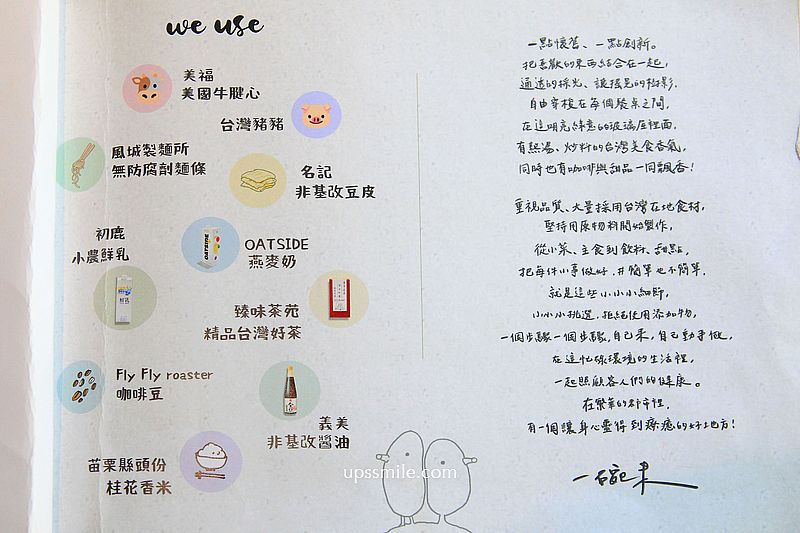 we use
美福
美國牛腱心
台灣豬豬
風城製麵所
無防腐劑麵條
名記
非基改豆皮
初鹿
小農鮮乳
OATSIDE
燕麥奶
臻味茶苑
精品台灣好茶
Fly Fly roaster
咖啡豆
義美
非基改醬油
苗栗縣頭份
桂花香米
一點懷舊、一點創新。
把喜歡的東西結合在一起,
通透的採光、讓搖晃的樹影,
自由穿梭在每個餐桌之間,
在這明亮綠意的玻璃屋裡面,
有熱湯、炒料的台灣美食香氣,
同時也有咖啡與甜品一同飄香!
重視品質、大量採用台灣在地食材,
堅持用原物料開始製作,
從小菜、主食到飲料、甜點,
把每件小事做好,并簡單也不簡單,
就是這些小小小細節,
小小小挑選,拒絕使用添加物,
一個步驟一個步驟,自己來,自己動手做,
在這忙碌環境的生活裡,
一起照顧客人們的健康。
在繁華的都市裡,
有一個讓身心靈得到療癒的好地方!
upssmile.com